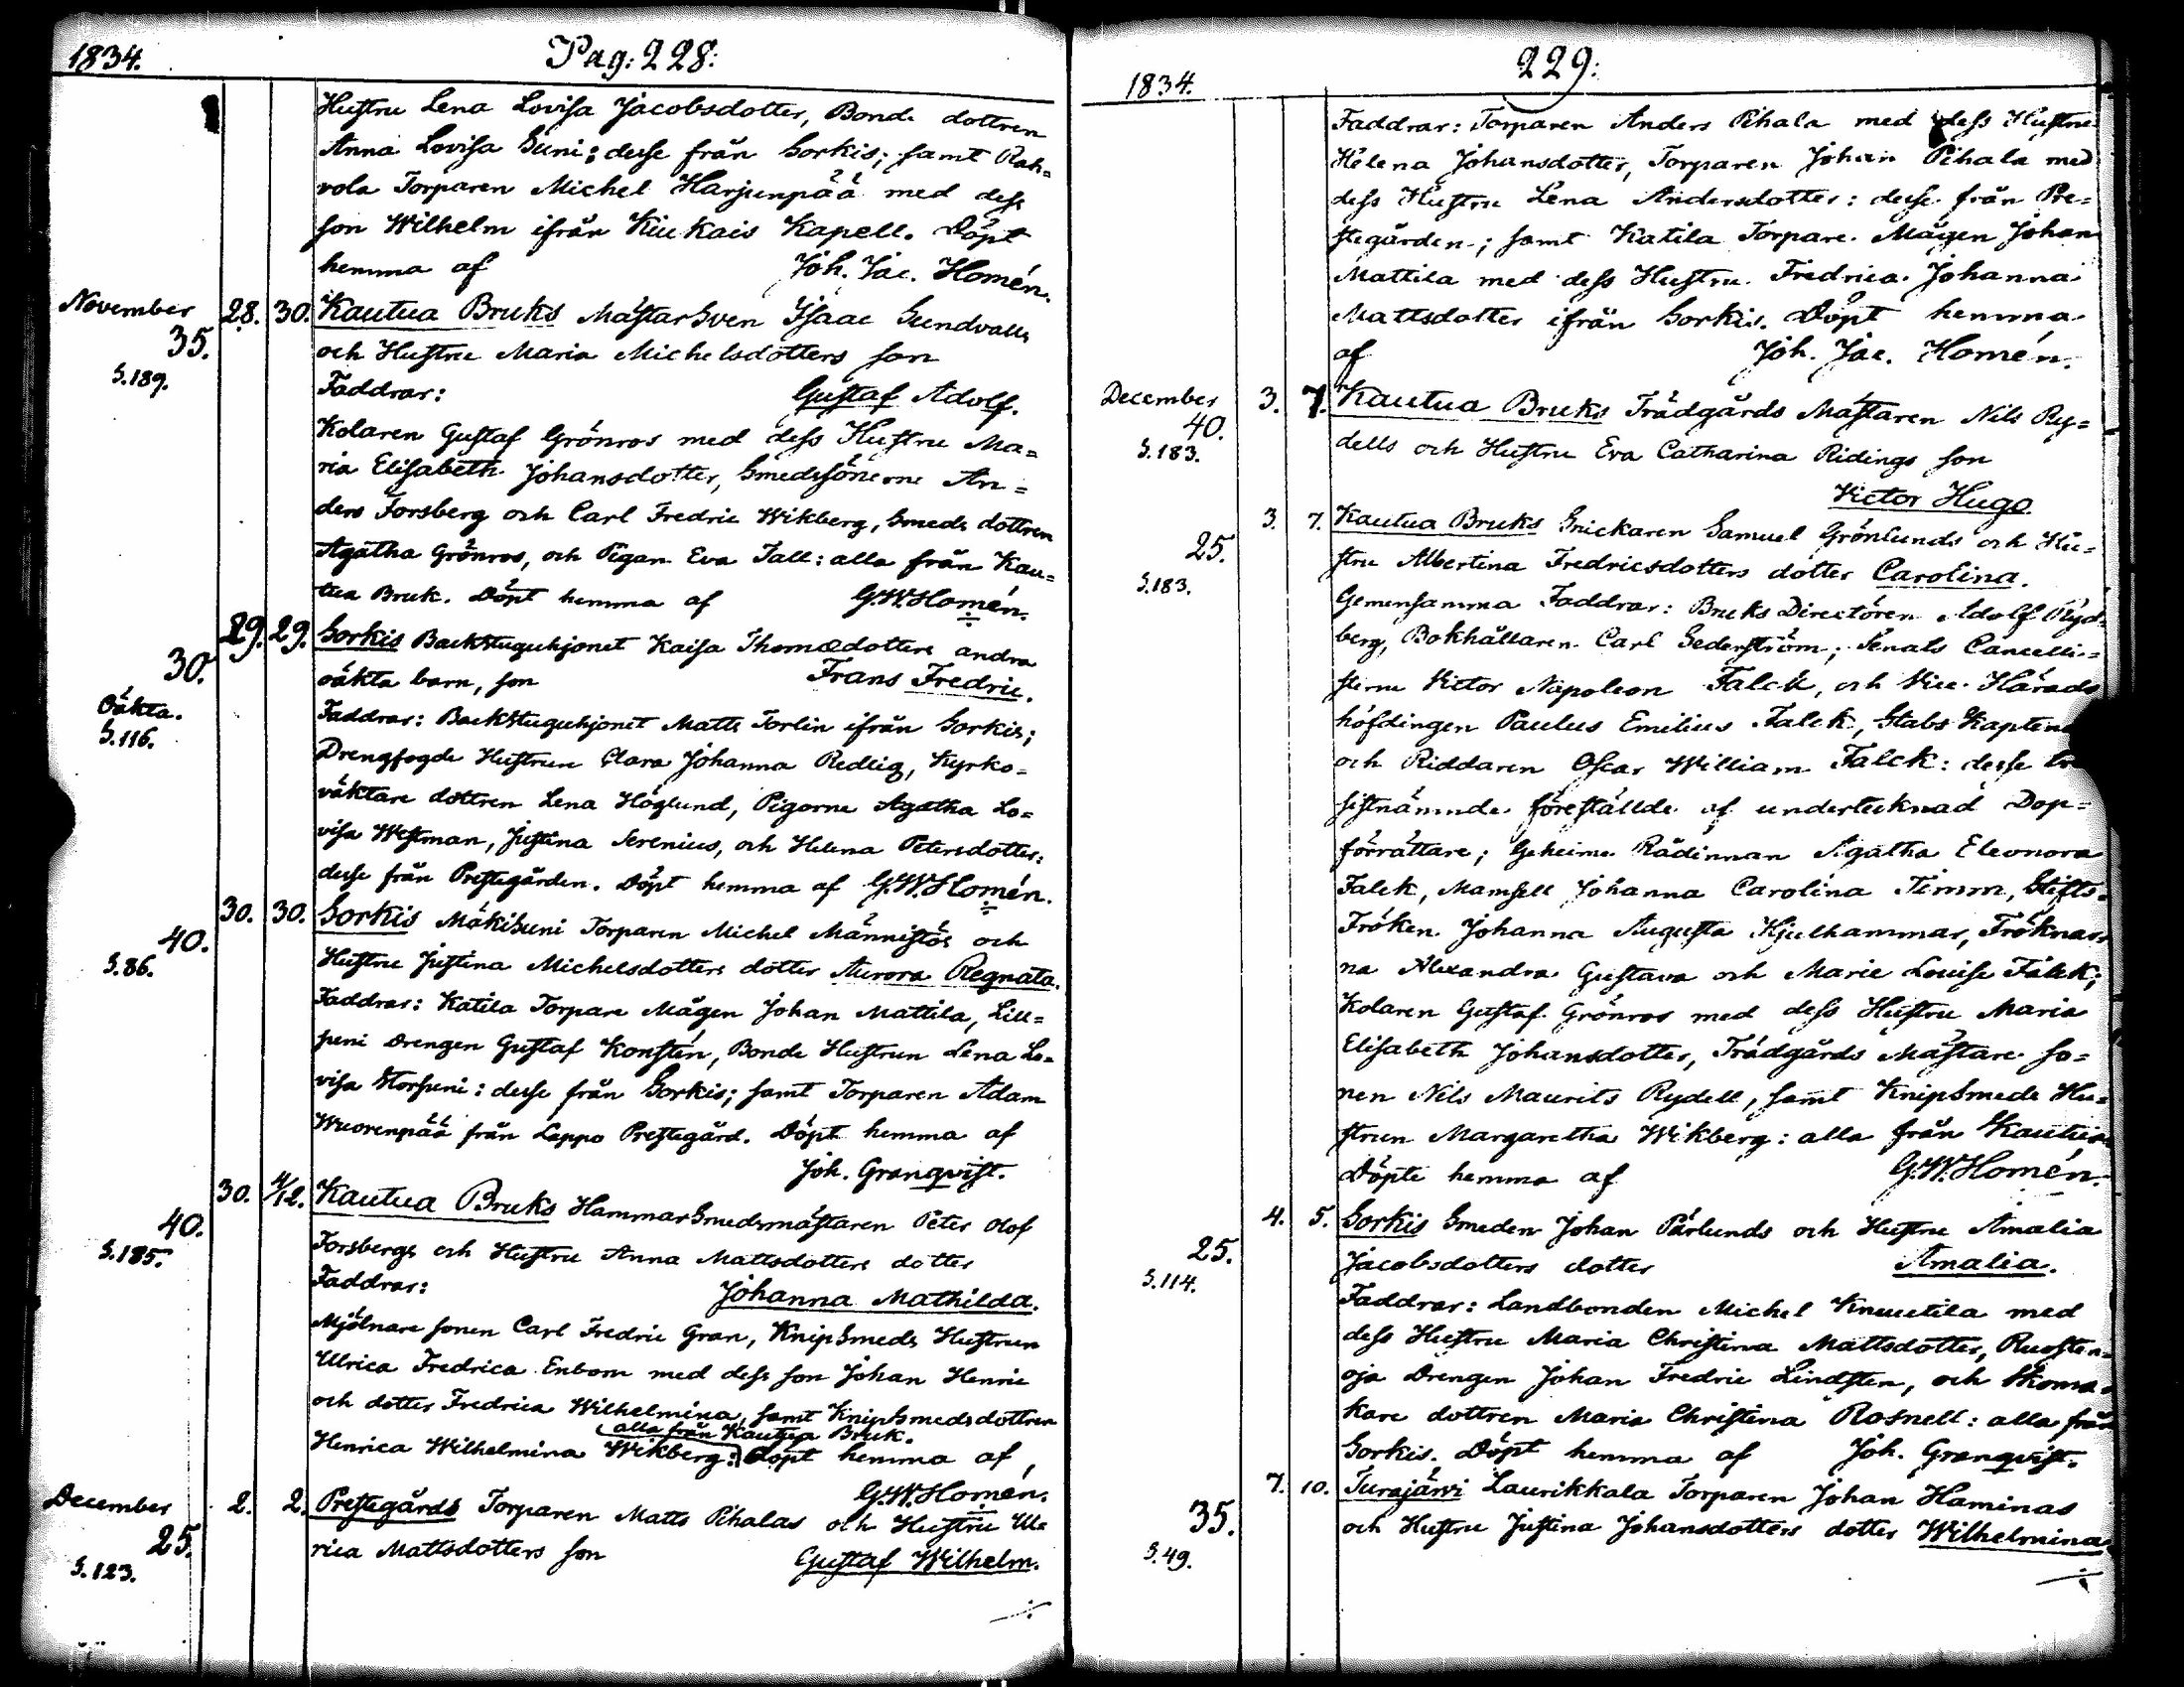 1834.
Pag: 228:
Hustru Lena Lovisa Jacobsdotter, Bonde dottren
Anna Lovisa Suni: desse från Sorkis; samt Rah=
vola Torparen Michel Harjunpää med dess
son Wilhelm ifrån Kiukais Kapell. Döpt
hemma af Joh. Jac. Homén.
November 28. 30. Kautua Bruks Mästar Sven Isaac Sundvalls
35. och Hustru Maria Michelsdotters son
S.189. Faddrar: Gustaf Adolf.
Kolaren Gustaf Grönros med dess Hustru Ma=
ria Elisabeth Johansdotter, Smedssönerne An=
ders Forsberg och Carl Fredric Wikberg, Smeds dottren
Agatha Grönros, och Pigan Eva Tall: alla från Kau=
tua Bruk. Döpt hemma af G.W.Homén.
29. 29. Sorkis Backstuguhjonet Kaisa Thomædotters andra
30. oäkta barn, son Frans Fredric.
Oäkta. Faddrar: Backstuguhjonet Matts Torlin ifrån Sorkis;
S.116. Drengfogde Hustrun Clara Johanna Redlig, Kyrko=
väktare dottren Lena Höglund, Pigorne Agatha Lo=
visa Westman, Justina Serenius, och Helena Petersdotter:
desse från Prestegården. Döpt hemma af G.W.Homén.
30. 30. Sorkis MäkiSuni Torparen Michel Männistös och
40. Hustru Justina Michelsdotters dotter Aurora Regnata.
S.86. Faddrar: Katila Torpare Mågen Johan Mattila, Lill=
suni Drengen Gustaf Konstén, Bonde Hustrun Lena Lo=
visa Storsuni: desse från Sorkis; samt Torparen Adam
Wuorenpää från Lappo Prestegård. Döpt hemma af
Joh. Granqvist.
30. 4/12. Kautua Bruks HammarSmedsmästaren Peter Olof
40. Forsbergs och Hustru Anna Mattsdotters dotter
S.185. Faddrar: Johanna Mathilda.
Mjölnare sonen Carl Fredric Gran, KnipSmeds Hustrun
Ulrica Fredrica Enbom med dess son Johan Henric
och dotter Fredrica Wilhelmina, samt KnipSmeds dottren
alla från Kautua Bruk.
Henrica Wilhelmina Wikberg: Döpt hemma af
G.W.Homén.
December 2. 2. Prestegårds Torparen Matts Pihalas och Hustru Ul=
25. rica Mattsdotters son Gustaf Wilhelm.
S.123.
1834.
229:
Faddrar: Torparen Anders Pihala med dess Hustru
Helena Johansdotter, Torparen Johan Pihala med
dess Hustru Lena Andersdotter: desse från Pre=
stegården; samt Katila Torpare Mågen Johan
Mattila med dess Hustru Fredrica Johanna
Mattsdotter ifrån Sorkis. Döpt hemma
af Joh. Jac. Homén.
December 3. 7. Kautua Bruks Trädgårds Mästaren Nils Ry=
40. dells och Hustru Eva Catharina Ridings son
S.183. Victor Hugo
3. 7. Kautua Bruks Snickaren Samuel Grönlunds och Hu=
25. stru Albertina Fredricsdotters dotter Carolina.
S.183. Gemensamma Faddrar: Bruks Directören Adolf Ryd=
berg, Bokhållaren Carl Sederström; Senats Cancelli=
sterne Victor Napoleon Falck, och Vice Härads
höfdingen Paulus Emilius Falck, Stabs Kapten
och Riddaren Oscar William Falck: desse
sistnämnde föreställde af undertecknad Dop=
förrättare; Geheime Rådinnan Agatha Eleonora
Falck, Mamsell Johanna Carolina Timm, Stifts=
Fröken Johanna Augusta Hjulhammar, Fröknar=
na Alexandra Gustava och Marie Louise Falck;
Kolaren Gustaf Grönros med dess Hustru Maria
Elisabeth Johansdotter, Trädgårds Mästare so=
nen Nils Maurits Rydell, samt KnipSmeds Hu=
strun Margaretha Wikberg: alla från Kautua
Döpte hemma af G.W.Homén.
4. 5. Sorkis Smeden Johan Pärlunds och Hustru Amalia
25. Jacobsdotters dotter Amalia.
S.114. Faddrar: Landbonden Michel Knuutila med
dess Hustru Maria Christina Mattsdotter, Ruosten=
oja Drengen Johan Fredric Lindsten, och Skoma=
kare dottren Maria Christina Rosnell: alla från
Sorkis. Döpt hemma af Joh. Granqvist.
7. 10. Turajärvi Laurikkala Torparen Johan Haminas
35. och Hustru Justina Johansdotters dotter Wilhelmina
S.49.